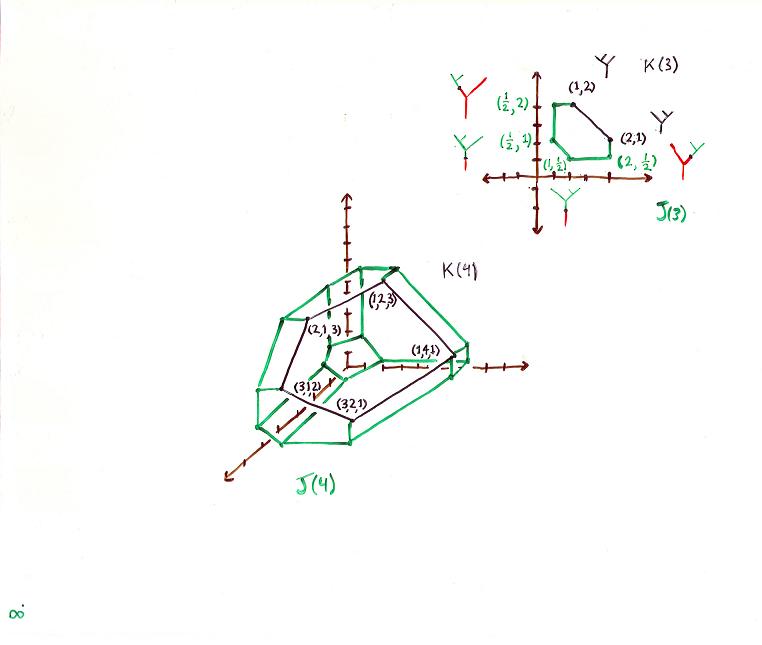 K(3)
(1,2)
(1/2, 2)
(1/2, 1)
(2,1)
(1,1/2)
(2, 1/2)
J(3)
K(4)
(1,2,3)
(2,1,3)
(1,4,1)
(3,1,2)
(3,2,1)
J(4)
∞